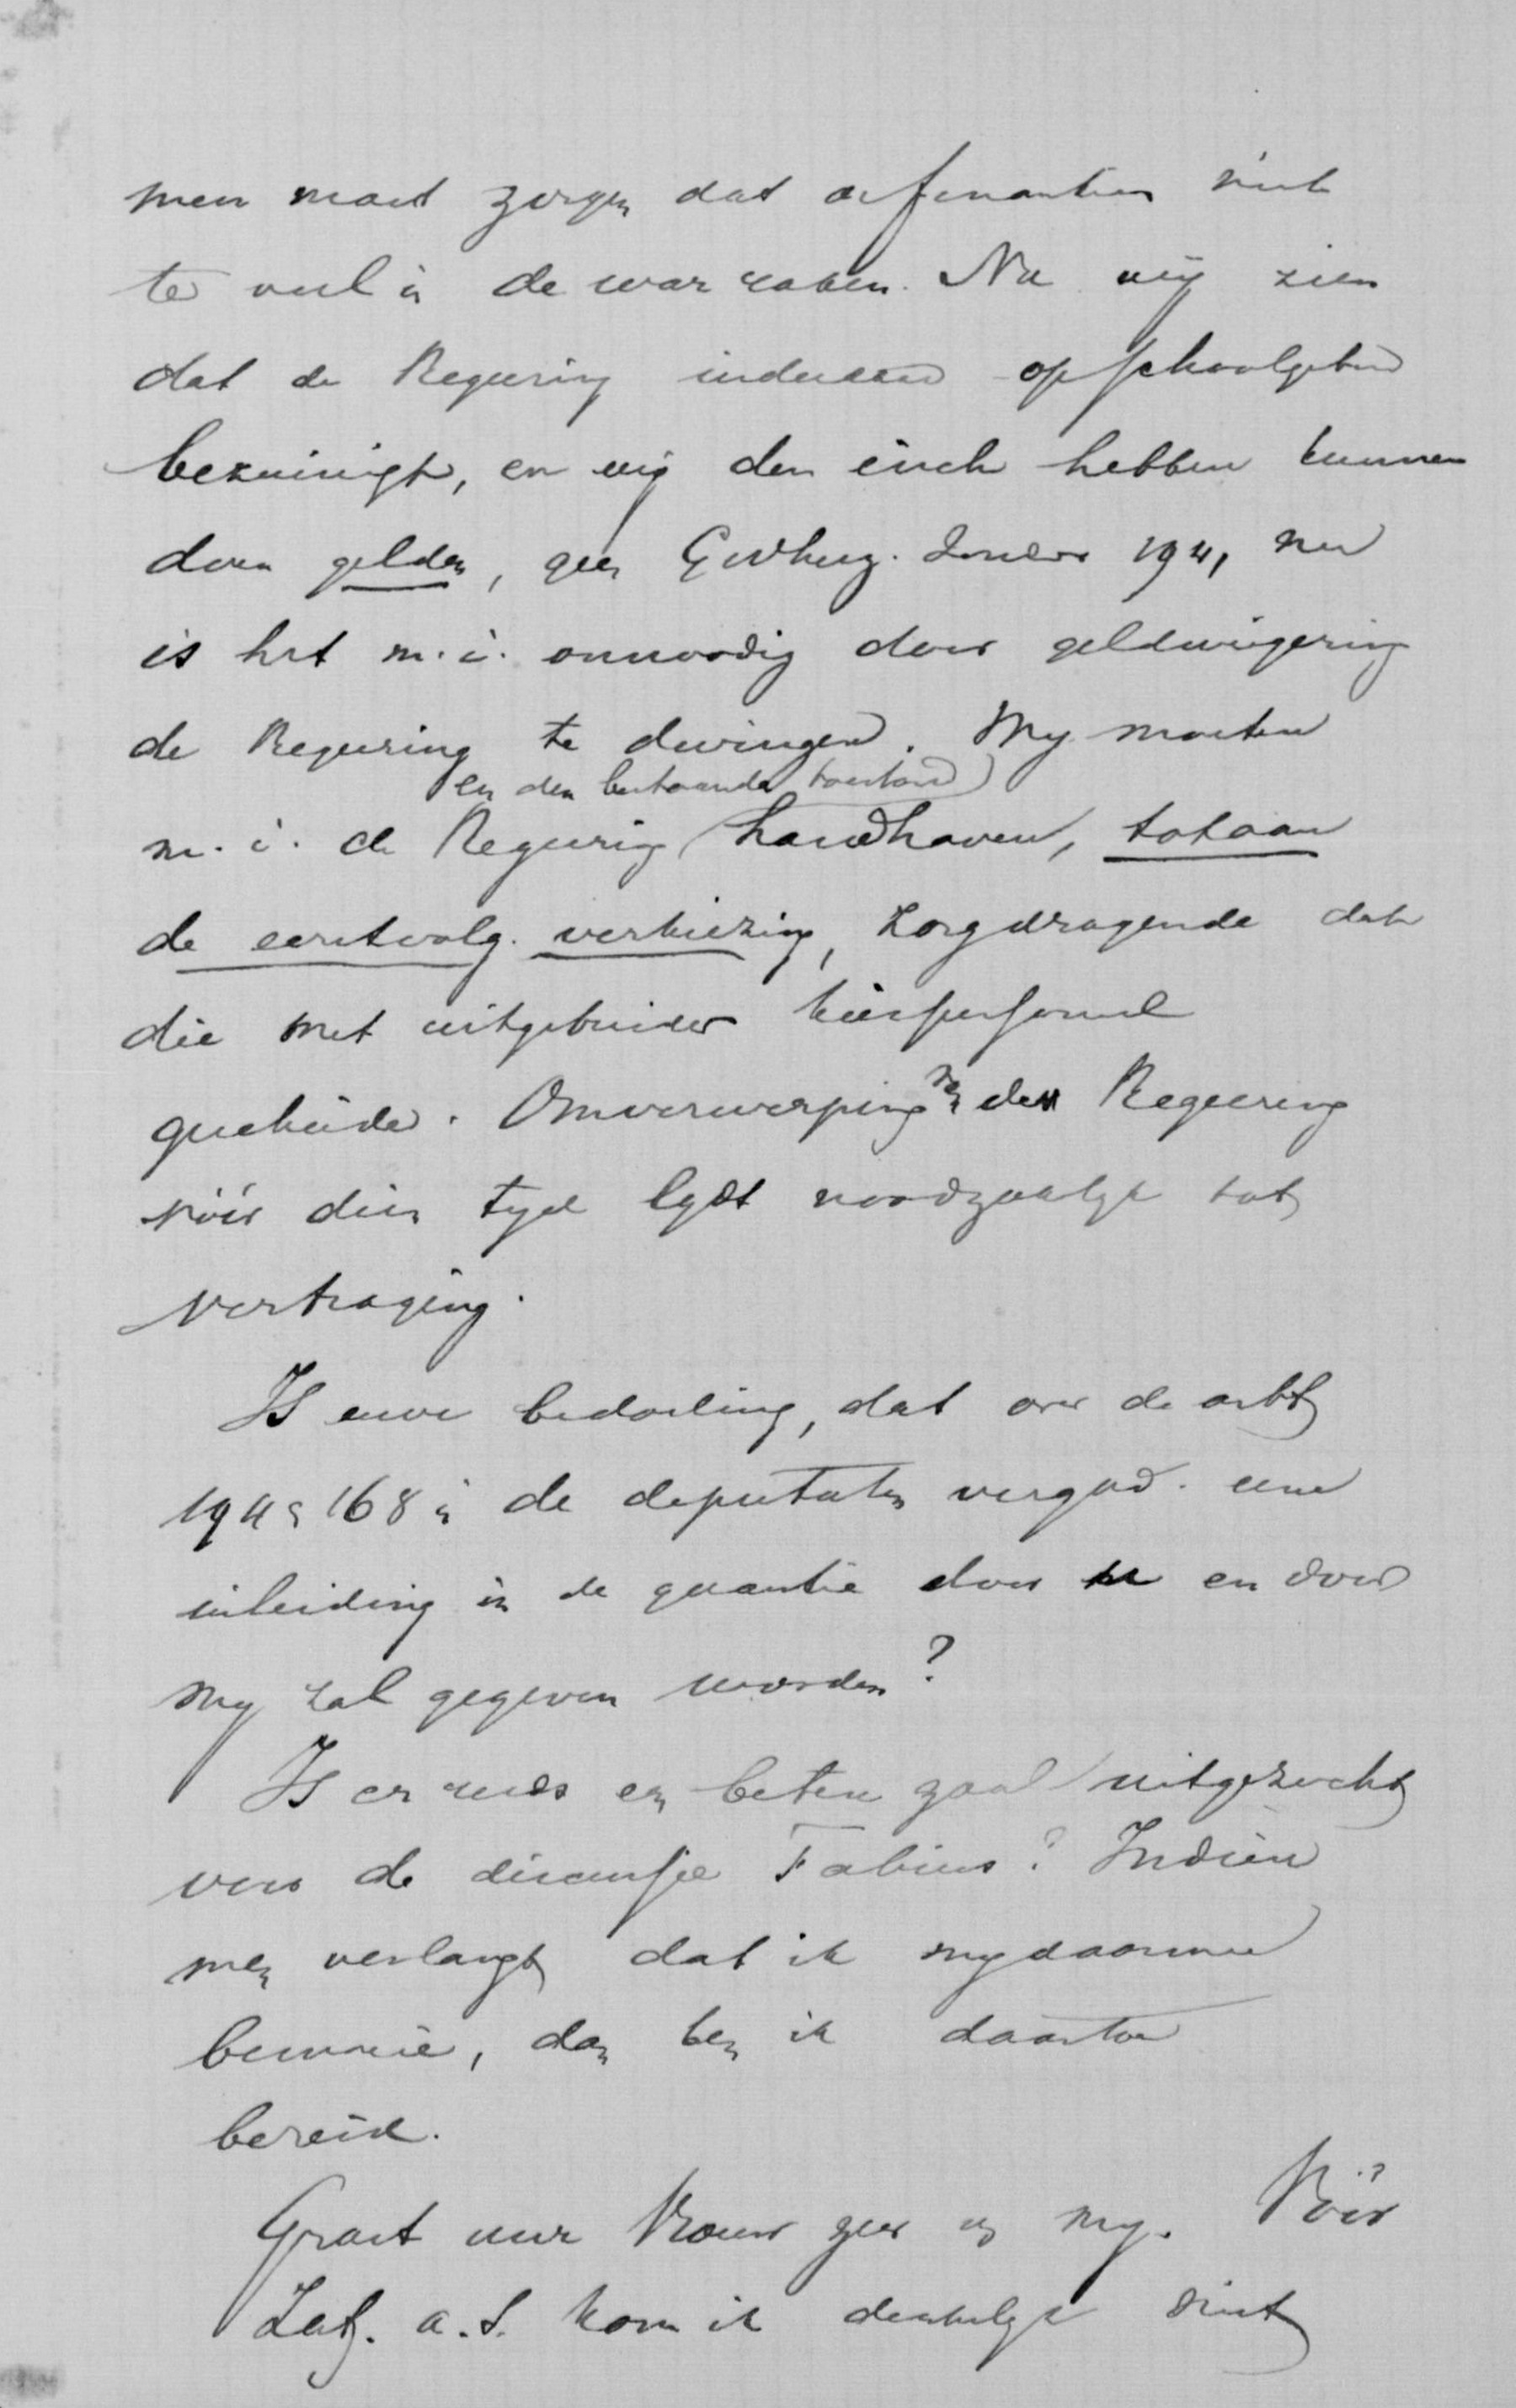 men moet zorgen dat de financtien niet
te veel in de war raken. Nu wij zien
dat de Regeering inderdaad op schoolgebied
bezuinigt, en wij den eisch hebben kunnen
doen gelden, geen Gwherz. zonder 194, nu
is het m.i. onnoodig door geldweigering
de Regeering te dwingen. Wij moeten
en den bestaanden toestand
m.i. de Regeering handhaven, tot aan
de eerstvolg. verkiezing, zorgdragende dat
die met uitgebreider kiespersoneel
geschiede. Omverwerping van de Regeering
vóór dien tijd lydt noodzakelijk tot
vertraging.
Is uwe bedoeling, dat over de artt
194 en 168 in de deputaten vergad. eene
inleiding in de quaestie door u en door
my zal gegeven worden?
Is er reeds een betere zaal uitgezocht
voor de discussie Fabius? Indien
men verlangt dat ik my daarmee
bemoeie, dan ben ik daartoe
bereid.
Groet uwe Vrouw zeer van my. Vóór
Zat. a.s. kom ik denkelijk niet